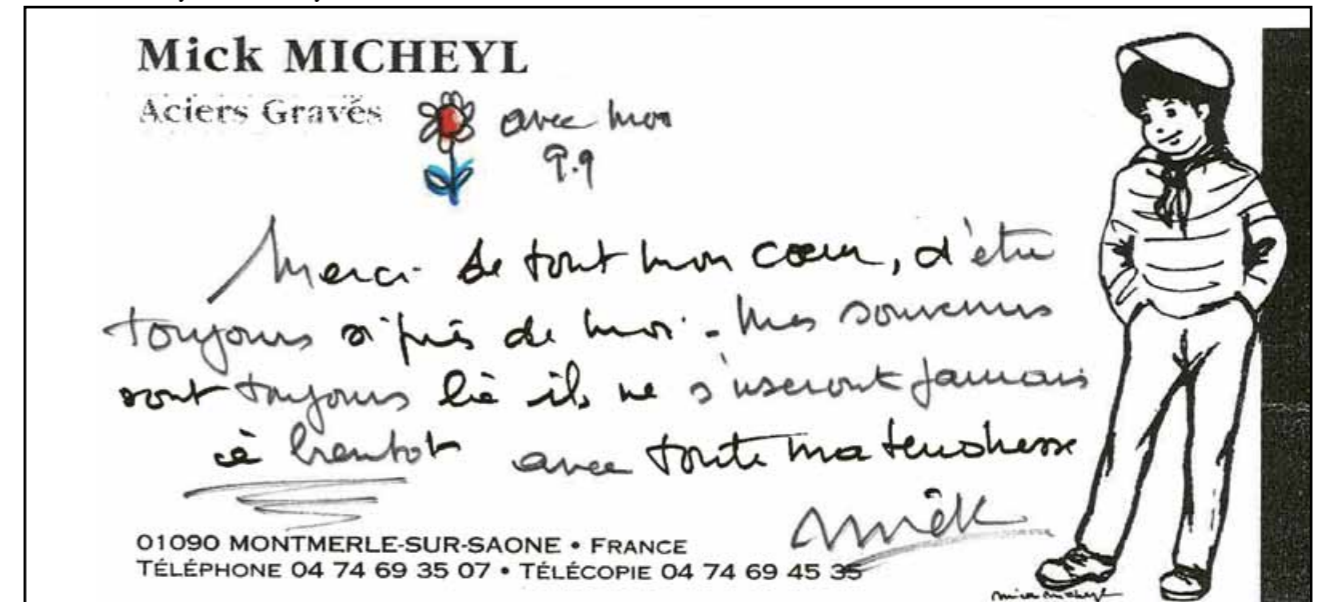 Mick MICHEYL
Aciers Gravés
avec mon
9.9
Merci de tout mon cœur, d'être
toujours si près de moi. Mes souvenirs
sont toujours liè ils ne s'useront jamais
à bientot avec toute ma tendresse
Mick
01090 MONTMERLE-SUR-SAONE • FRANCE
TÉLÉPHONE 04 74 69 35 07 • TÉLÉCOPIE 04 74 69 45 35
mick micheyl